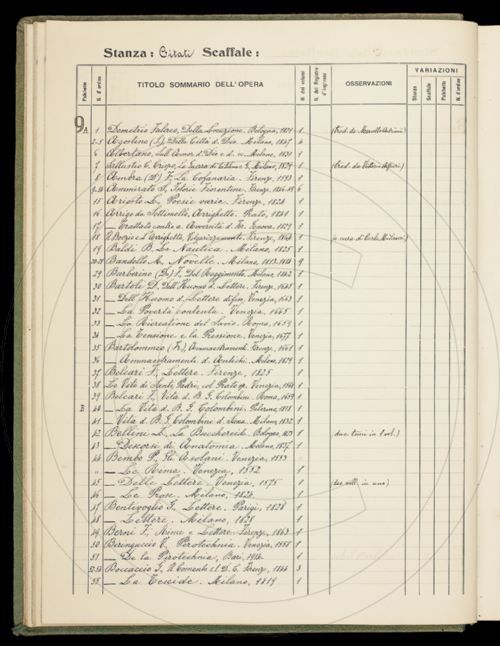 Stanza: Citati Scaffale:
Palchetto N. d'ordine TITOLO SOMMARIO DELL'OPERA N. dei volumi N. del Registro d'ingresso OSSERVAZIONI VARIAZIONI Stanza Scaffale Palchetto N. d'ordine
9A 1 Demetrio Falereo, Della Locuzione. Bologna, 1821 1
2-5 Agostino (S.), Della Città di Dio. Milano, 4
6 Albertano, 1
7 Sallustio C. Crispo, 1
8 Ambra (D') F., La Cofanaria. Firenze, 1593 1
9-14 Ammirato S., Istorie Fiorentine. Firenze, 6
15 Ariosto L., Poesie varie. Firenze, 1824 1
16 Arrigo da Settimello, Arrighetto. Prato, 1841 1
17 — Trattato contro a Avversità d. Genova, 1
18 Volgarizzamento. Firenze, 1864 1 (a cura di Carlo Milanesi)
19 Baldi B. La Nautica. Milano, 1
20-28 Bandello M., Novelle. Milano, 1813-1814 9
29 Barberino (Da) F., Del Reggimento. Milano, 1842 1
30 Bartoli D., Dell'Huomo d. Lettere. Firenze, 1
31 — Dell'Huomo d. Lettere Venezia, 1
32 — La Povertà contenta. Venezia, 1
33 — La Ricreatione del Savio. Roma, 1659 1
34 — La Tensione e la Pressione. Venezia, 1
35 Bartolommeo (Fr.), Ammaestramenti. Firenze, 1661 1
36 — Ammaestramenti d. Antichi. Milano, 1
37 Belcari F., Lettere. Firenze, 1825 1
38 La Vita di Santi Padri, Prato Venezia, 1
39 Belcari F., Vita d. B. G. Colombini. Roma, 1659 1
B 40 — La Vita d. B. G. Colombini. Palermo, 1818 1
41 — Vita d. B. G. Colombini d. Siena. Milano, 1832 1
42 Bellini L., La Bucchereide. Bologna, 1823 1 (due tomi in 1 vol.)
43 — Discorsi di Anatomia. Milano, 1837 1
44 Bembo P., Gli Asolani. Venezia, 1
„ — Le Rime. Venezia, 1552 1
45 — Delle Lettere. Venezia, 1575 1 (due voll. in uno)
46 — Le Prose. Milano, 1824. 1
47 Bentivoglio G., Lettere. Parigi, 1828 1
48 — Lettere. Milano, 1828 1
49 Berni F., Rime e Lettere. Firenze, 1
50 Beringuccio V., Pirotechnia. Venezia, 1558 1
51 — De la Pirotechnia, Bari, 1914. 1
52-54 Boccaccio G., Il Comento s. l. D. C. Firenze, 1844 3
55 — La Teseide. Milano, 1819 1